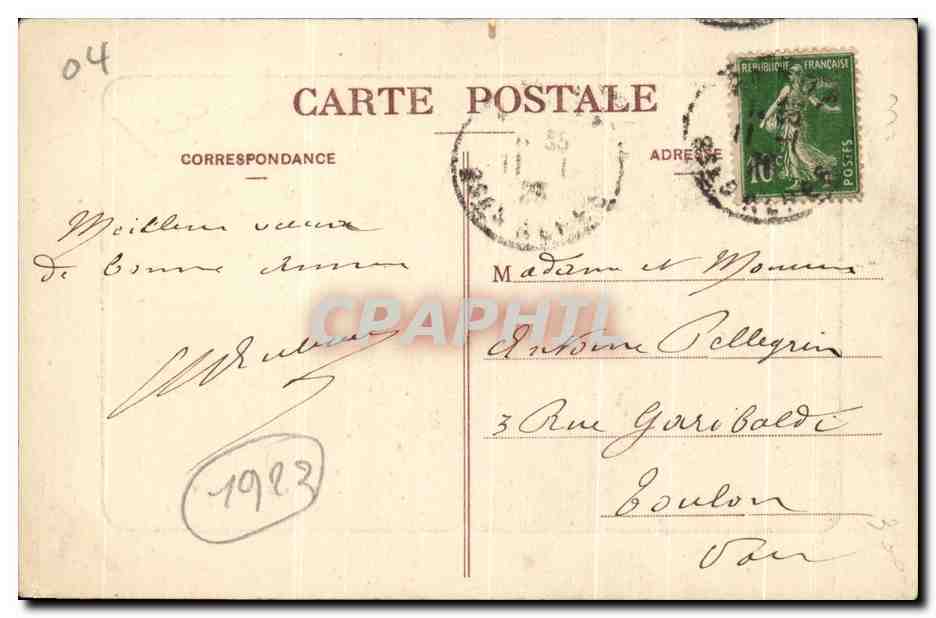 04
CARTE POSTALE
RÉPUBLIQUE FRANÇAISE
10c
POSTES
CORRESPONDANCE
ADRESSE
Meilleurs vœux
de bonne année
Madame et Monsieur
Antoine Pellegrin
3 Rue Garibaldi
Toulon
Var
1923
CPAPHIL